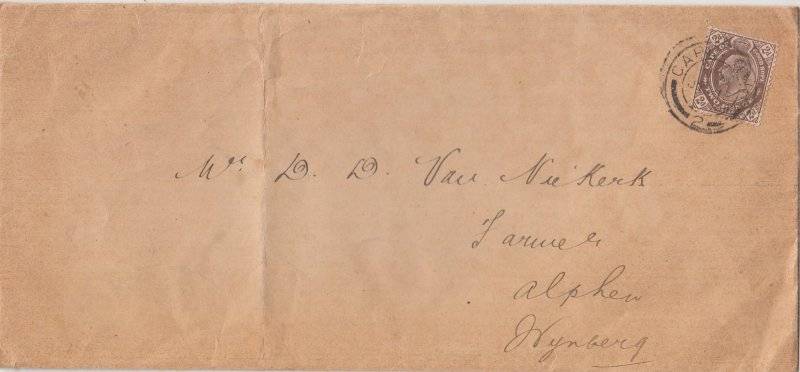 CAP
2
Mr. D. D. Van Niekerk
Farmer
Alphen
Wynberg